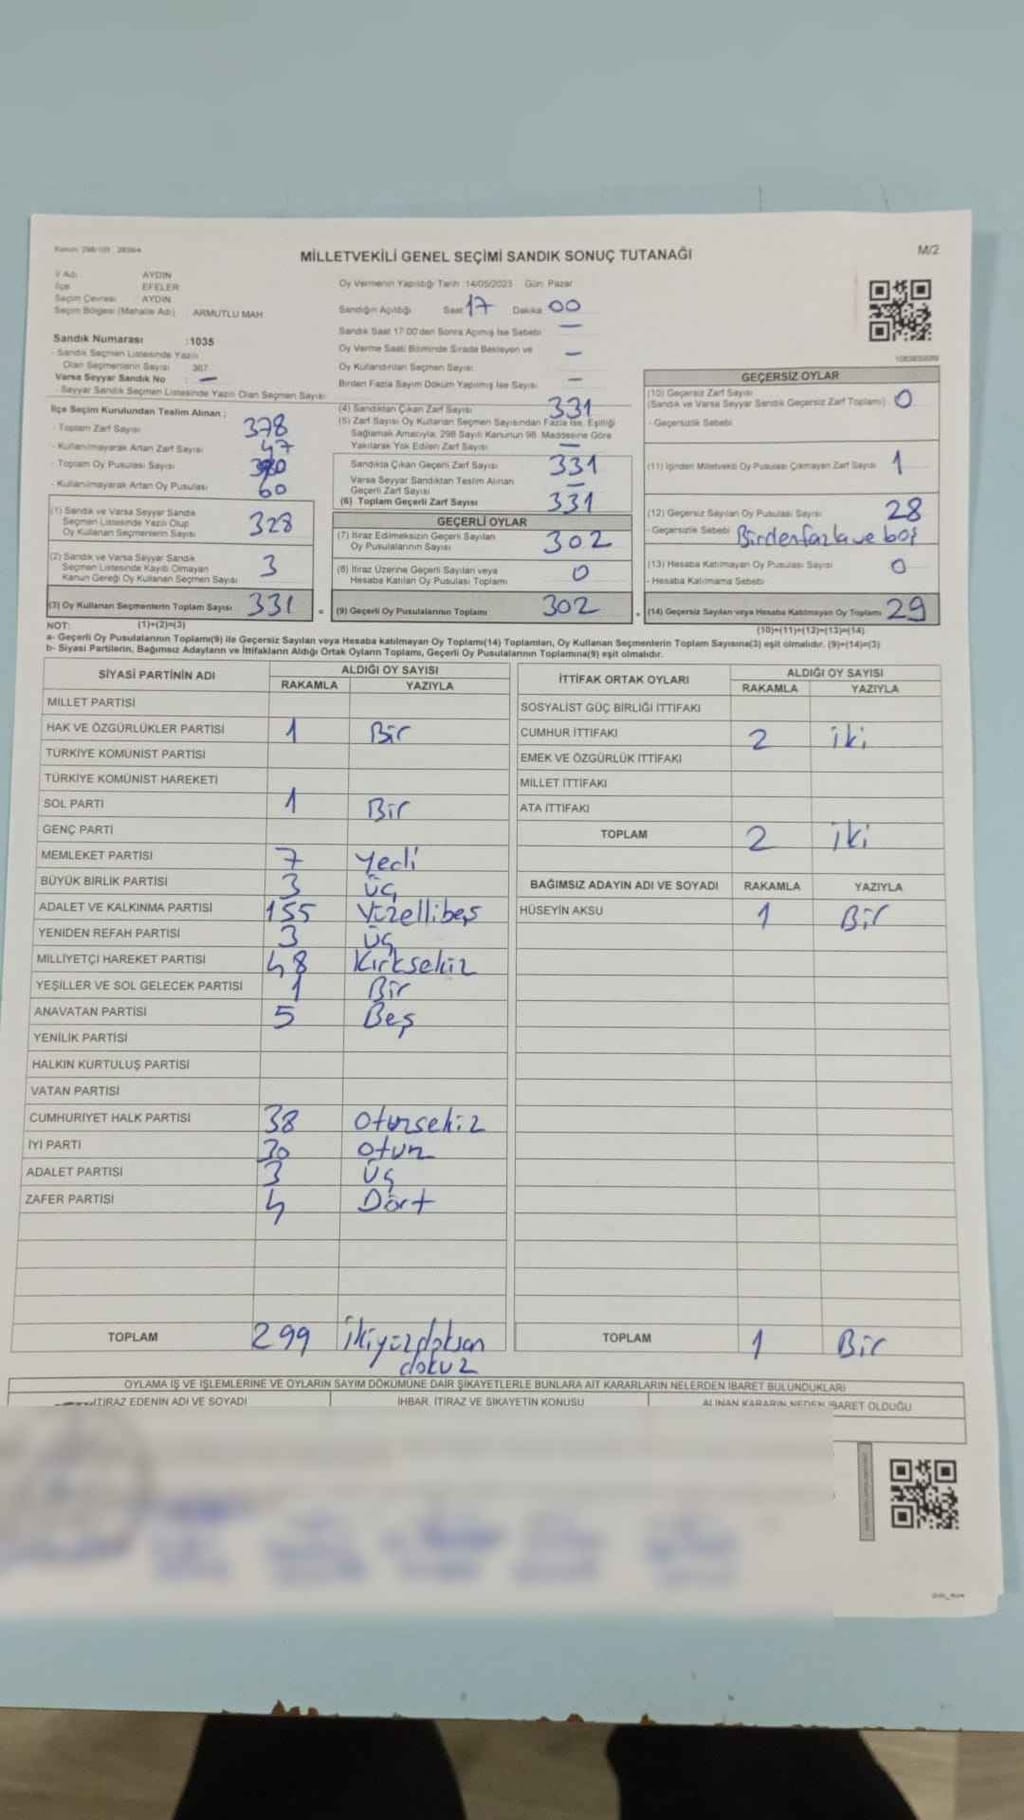 MİLLETVEKİLİ GENEL SEÇİMİ SANDIK SONUÇ TUTANAĞI
M/2
İl Adı : AYDIN
İlçe EFELER
Seçim Çevresi AYDIN
Seçim Bölgesi (Mahalle Adı) ARMUTLU MAH.
Oy Vermenin Yapıldığı Tarih :14/05/2023 Gün: Pazar
Sandığın Açıldığı Saat 17 Dakika 00
Sandık Saat 17:00'den Sonra Açılmış İse Sebebi —
Oy Verme Saati Bitiminde Sırada Bekleyen ve
Oy Kullandırılan Seçmen Sayısı —
Birden Fazla Sayım Döküm Yapılmış İse Sayısı —
Sandık Numarası :1035
- Sandık Seçmen Listesinde Yazılı
Olan Seçmenlerin Sayısı 367
Varsa Seyyar Sandık No : —
- Seyyar Sandık Seçmen Listesinde Yazılı Olan Seçmen Sayısı
İlçe Seçim Kurulundan Teslim Alınan ;
- Toplam Zarf Sayısı 378
- Kullanılmayarak Artan Zarf Sayısı 47
- Toplam Oy Pusulası Sayısı
- Kullanılmayarak Artan Oy Pusulası 60
(1) Sandık ve Varsa Seyyar Sandık
Seçmen Listesinde Yazılı Olup
Oy Kullanan Seçmenlerin Sayısı 328
(2) Sandık ve Varsa Seyyar Sandık
Seçmen Listesinde Kayıtlı Olmayan
Kanun Gereği Oy Kullanan Seçmen Sayısı 3
(3) Oy Kullanan Seçmenlerin Toplam Sayısı 331
(4) Sandıktan Çıkan Zarf Sayısı 331
(5) Zarf Sayısı Oy Kullanan Seçmen Sayısından Fazla İse, Eşitliği
Sağlamak Amacıyla, 298 Sayılı Kanunun 98. Maddesine Göre
Yakılarak Yok Edilen Zarf Sayısı —
Sandıkta Çıkan Geçerli Zarf Sayısı 331
Varsa Seyyar Sandıktan Teslim Alınan
Geçerli Zarf Sayısı —
(6) Toplam Geçerli Zarf Sayısı 331
GEÇERLİ OYLAR
(7) İtiraz Edilmeksizin Geçerli Sayılan
Oy Pusulalarının Sayısı 302
(8) İtiraz Üzerine Geçerli Sayılan veya
Hesaba Katılan Oy Pusulası Toplamı 0
(9) Geçerli Oy Pusulalarının Toplamı 302
GEÇERSİZ OYLAR
(10) Geçersiz Zarf Sayısı
(Sandık ve Varsa Seyyar Sandık Geçersiz Zarf Toplamı) 0
- Geçersizlik Sebebi
(11) İçinden Milletvekili Oy Pusulası Çıkmayan Zarf Sayısı 1
(12) Geçersiz Sayılan Oy Pusulası Sayısı 28
- Geçersizlik Sebebi Birden fazla ve boş
(13) Hesaba Katılmayan Oy Pusulası Sayısı 0
- Hesaba Katılmama Sebebi
(14) Geçersiz Sayılan veya Hesaba Katılmayan Oy Toplamı 29
NOT: (1)+(2)=(3)
(10)+(11)+(12)+(13)=(14)
a- Geçerli Oy Pusulalarının Toplamı(9) ile Geçersiz Sayılan veya Hesaba katılmayan Oy Toplamı(14) Toplamları, Oy Kullanan Seçmenlerin Toplam Sayısına(3) eşit olmalıdır. (9)+(14)=(3)
b- Siyasi Partilerin, Bağımsız Adayların ve İttifakların Aldığı Ortak Oyların Toplamı, Geçerli Oy Pusulalarının Toplamına(9) eşit olmalıdır.
SİYASİ PARTİNİN ADI ALDIĞI OY SAYISI
RAKAMLA YAZIYLA
MİLLET PARTİSİ
HAK VE ÖZGÜRLÜKLER PARTİSİ 1 Bir
TÜRKİYE KOMÜNİST PARTİSİ
TÜRKİYE KOMÜNİST HAREKETİ
SOL PARTİ 1 Bir
GENÇ PARTİ
MEMLEKET PARTİSİ 7 Yedi
BÜYÜK BİRLİK PARTİSİ 3 üç
ADALET VE KALKINMA PARTİSİ 155 Yüzellibeş
YENİDEN REFAH PARTİSİ 3 üç
MİLLİYETÇİ HAREKET PARTİSİ 48 Kırksekiz
YEŞİLLER VE SOL GELECEK PARTİSİ 1 Bir
ANAVATAN PARTİSİ 5 Beş
YENİLİK PARTİSİ
HALKIN KURTULUŞ PARTİSİ
VATAN PARTİSİ
CUMHURİYET HALK PARTİSİ 38 Otuzsekiz
İYİ PARTİ 30 otuz
ADALET PARTİSİ 3 üç
ZAFER PARTİSİ 4 Dört
TOPLAM 299 İkiyüzdoksan
dokuz
İTTİFAK ORTAK OYLARI ALDIĞI OY SAYISI
RAKAMLA YAZIYLA
SOSYALİST GÜÇ BİRLİĞİ İTTİFAKI
CUMHUR İTTİFAKI 2 iki
EMEK VE ÖZGÜRLÜK İTTİFAKI
MİLLET İTTİFAKI
ATA İTTİFAKI
TOPLAM 2 iki
BAĞIMSIZ ADAYIN ADI VE SOYADI RAKAMLA YAZIYLA
HÜSEYİN AKSU 1 Bir
TOPLAM 1 Bir
OYLAMA İŞ VE İŞLEMLERİNE VE OYLARIN SAYIM DÖKÜMÜNE DAİR ŞİKAYETLERLE BUNLARA AİT KARARLARIN NELERDEN İBARET BULUNDUKLARI
İTİRAZ EDENİN ADI VE SOYADI İHBAR, İTİRAZ VE ŞİKAYETİN KONUSU ALINAN KARARIN NEDEN İBARET OLDUĞU